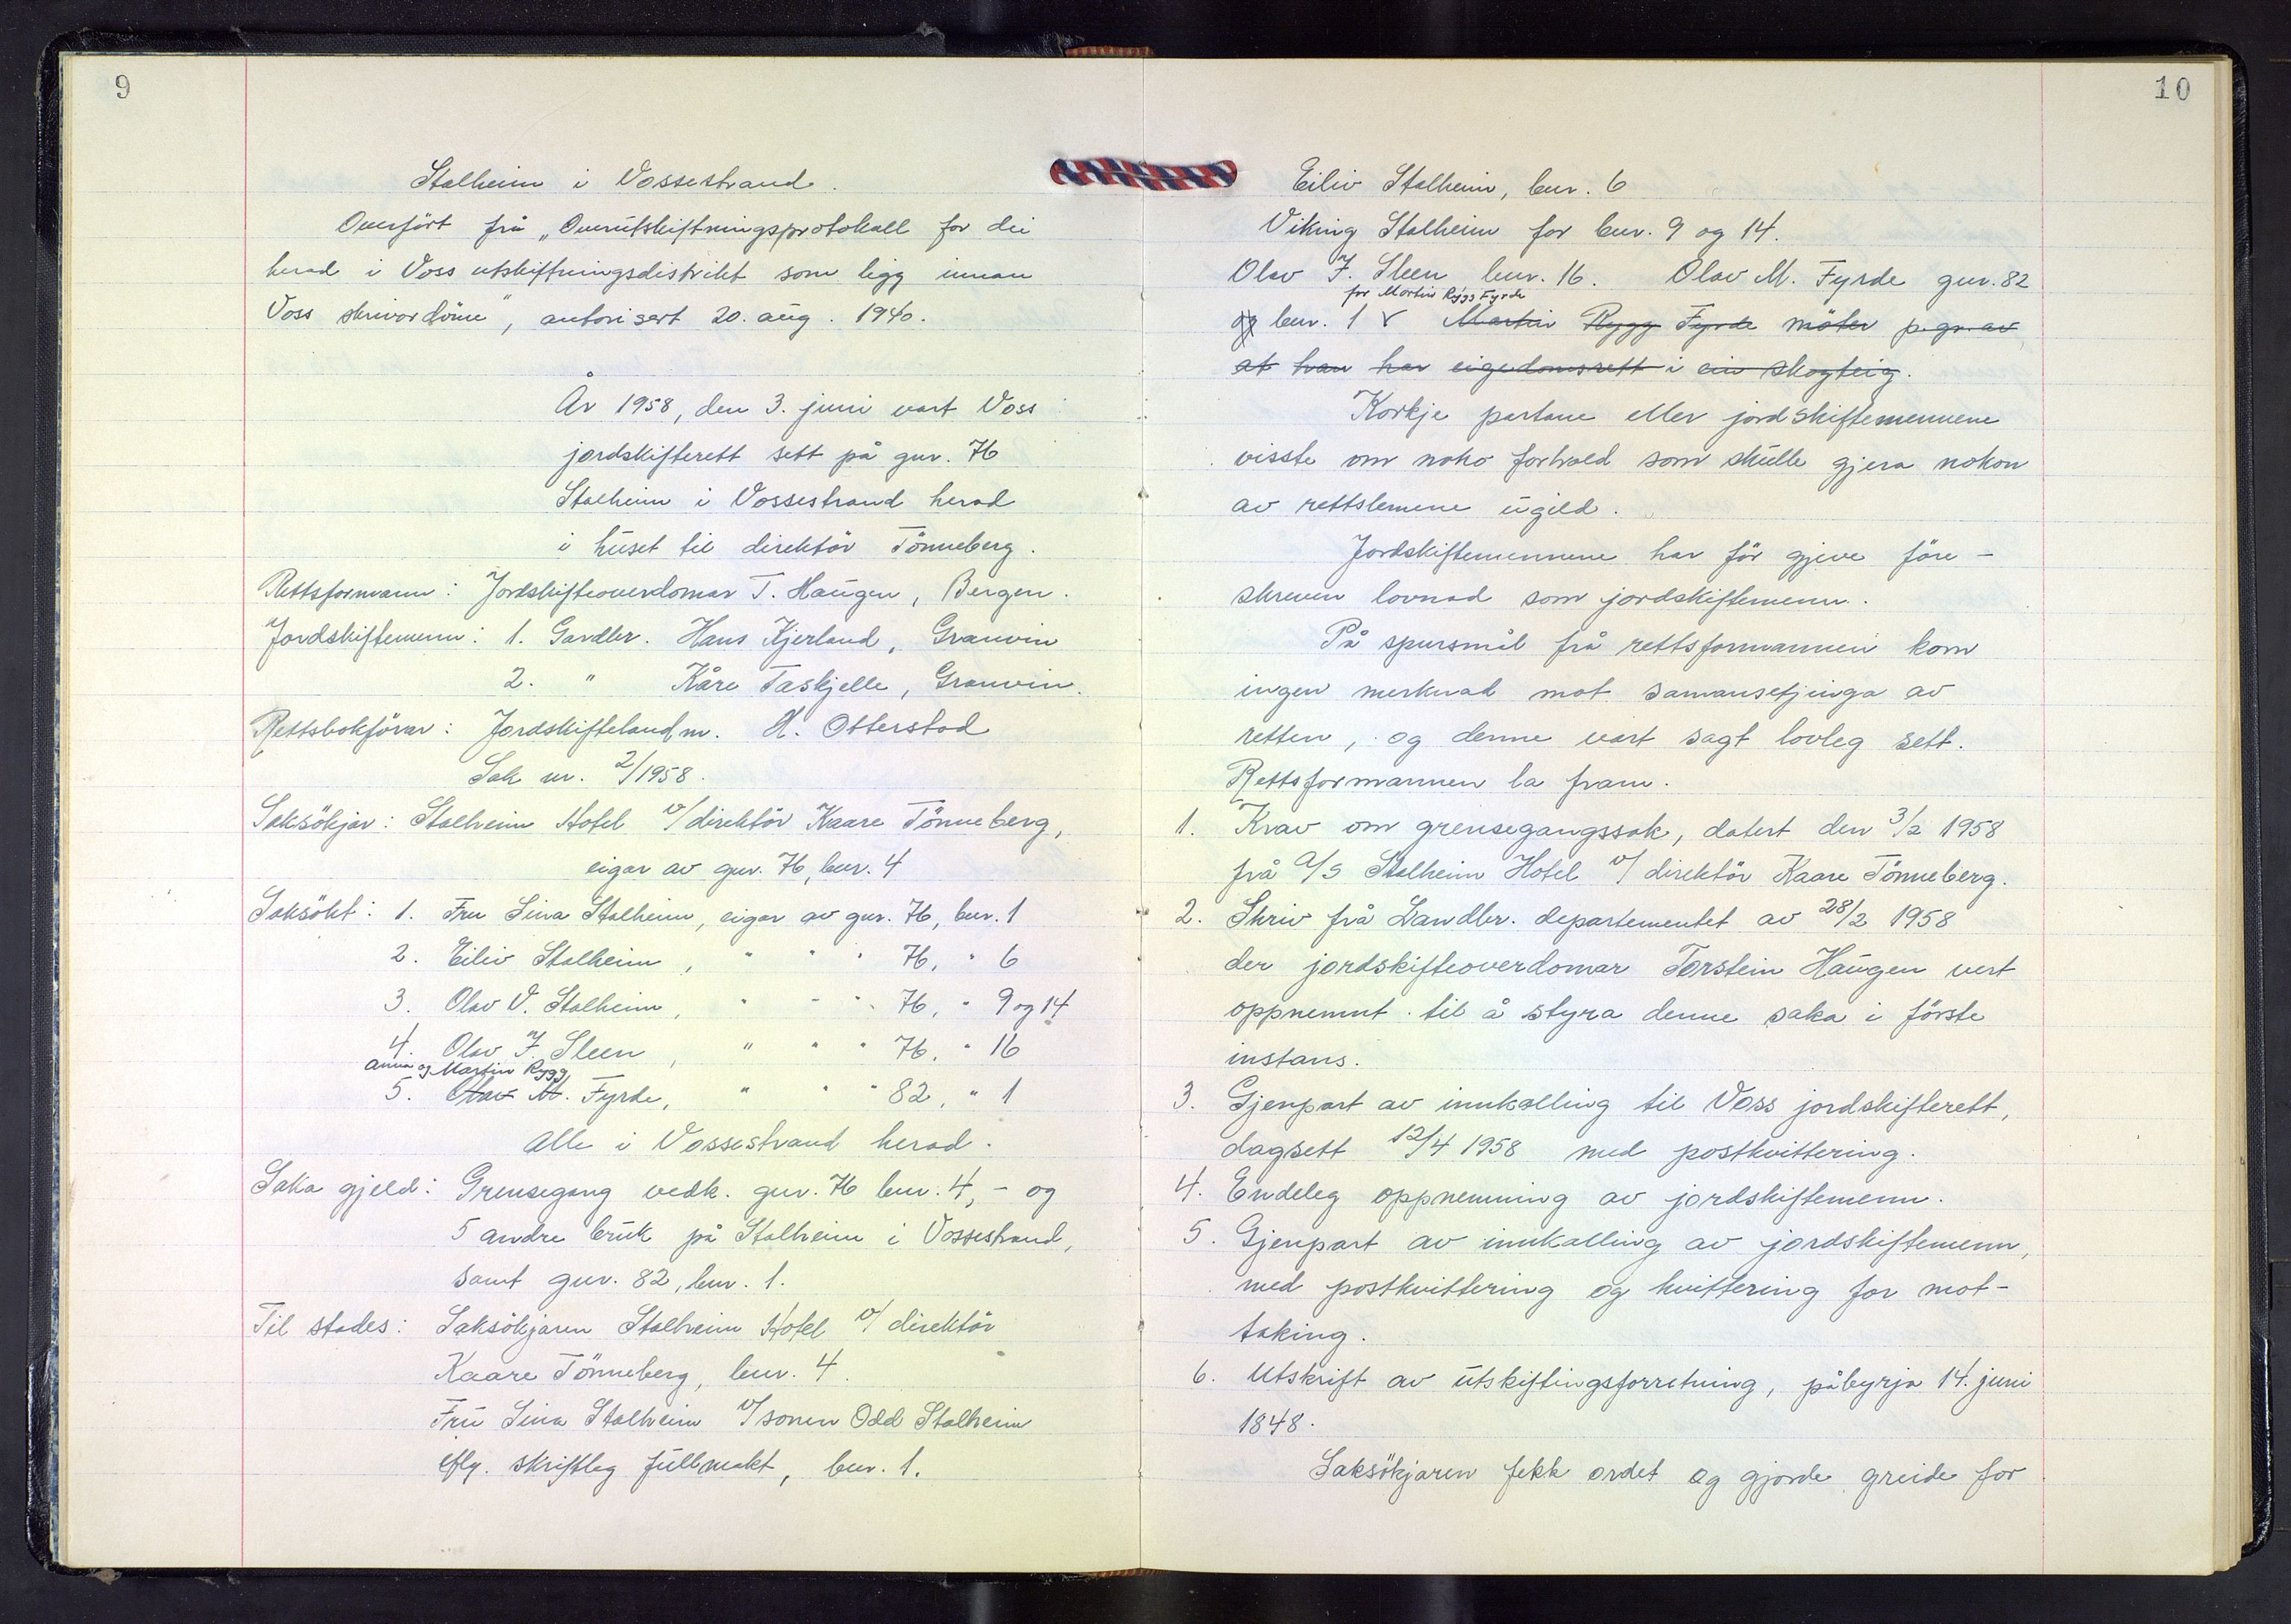 9
Stalheim i Vossestrand.
Overført frå „Overutskiftningsprotokoll for dei
herad i Voss utskiftningsdistrikt som ligg innan
Voss skrivardöme", autorisert 20. aug. 1940.
År 1958, den 3. juni vart Voss
jordskifterett sett på gnr. 76
Stalheim i Vossestrand herad
i huset til direktör Tönneberg.
Rettsformann: Jordskifteoverdomar T. Haugen, Bergen.
Jordskiftemenn: 1. Gardbr. Hans Kjerland, Granvin
2. " Kåre Taskjelle, Granvin.
Rettsbokförar: Jordskiftelandm. H. Otterstad
Sak nr. 2/1958.
Saksökjar: Stalheim Hotel v/direktör Kaare Tönneberg,
eigar av gnr. 76, bnr. 4
Saksökt: 1. Fru Lina Stalheim, eigar av gnr. 76, bnr. 1
2. Eiliv Stalheim, " " " 76, " 6
3. Olav V. Stalheim, " " " 76, " 9 og 14
4. Olav J. Sleen, " " " 76, " 16
Anna og Martin Rygg
5. Olav M. Fyrde, " " " 82, " 1
Alle i Vossestrand herad.
Saka gjeld: Grensegang vedk. gnr. 76 bnr. 4, - og
5 andre bruk på Stalheim i Vossestrand,
samt gnr. 82, bnr. 1.
Til stades: Saksökjaren Stalheim Hotel v/ direktör
Kaare Tönneberg, bnr. 4.
Fru Lina Stalheim v/sonen Odd Stalheim
iflg. skriftleg fullmakt, bnr. 1.
10
Eiliv Stalheim, bnr. 6
Viking Stalheim for bnr. 9 og 14.
Olav J. Sleen bnr. 16. Olav M. Fyrde gnr. 82
for Martin Rygg Fyrde
og bnr. 1 V Martin Rygg Fyrde möter p.gr.av
at han har eigedomsrett i ein skogteig.
Korkje partane eller jordskiftemennene
visste om noko forhold som skulle gjera nokon
av rettslemene ugild.
Jordskiftemennene har för gjeve före-
skreven lovnad som jordskiftemenn.
På spursmål frå rettsformannen kom
ingen merknad mot samansetjinga av
retten, og denne vart sagt lovleg sett.
Rettsformannen la fram.
1. Krav om grensegangssak, datert den 3/2 1958
frå A/S Stalheim Hotel v/ direktör Kaare Tönneberg.
2. Skriv frå Landbr. departementet av 28/2 1958
der jordskifteoverdomar Torstein Haugen vert
oppnemnt til å styra denne saka i förste
instans.
3. Gjenpart av innkalling til Voss jordskifterett,
dagsett 12/4 1958 med postkvittering.
4. Endeleg oppnemning av jordskiftemenn.
5. Gjenpart av innkalling av jordskiftemenn,
med postkvittering og kvittering for mot-
taking.
6. Utskrift av utskiftingsforretning, påbyrja 14. juni
1848.
Saksökjaren fekk ordet og gjorde greide for